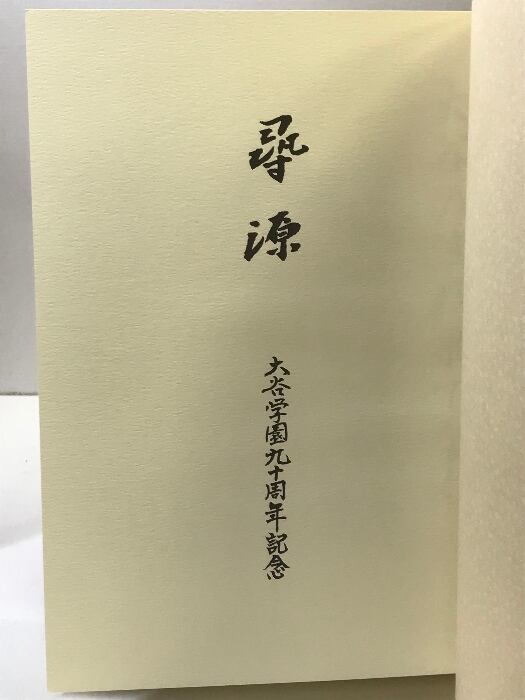 尋源
大谷学園九十周年記念